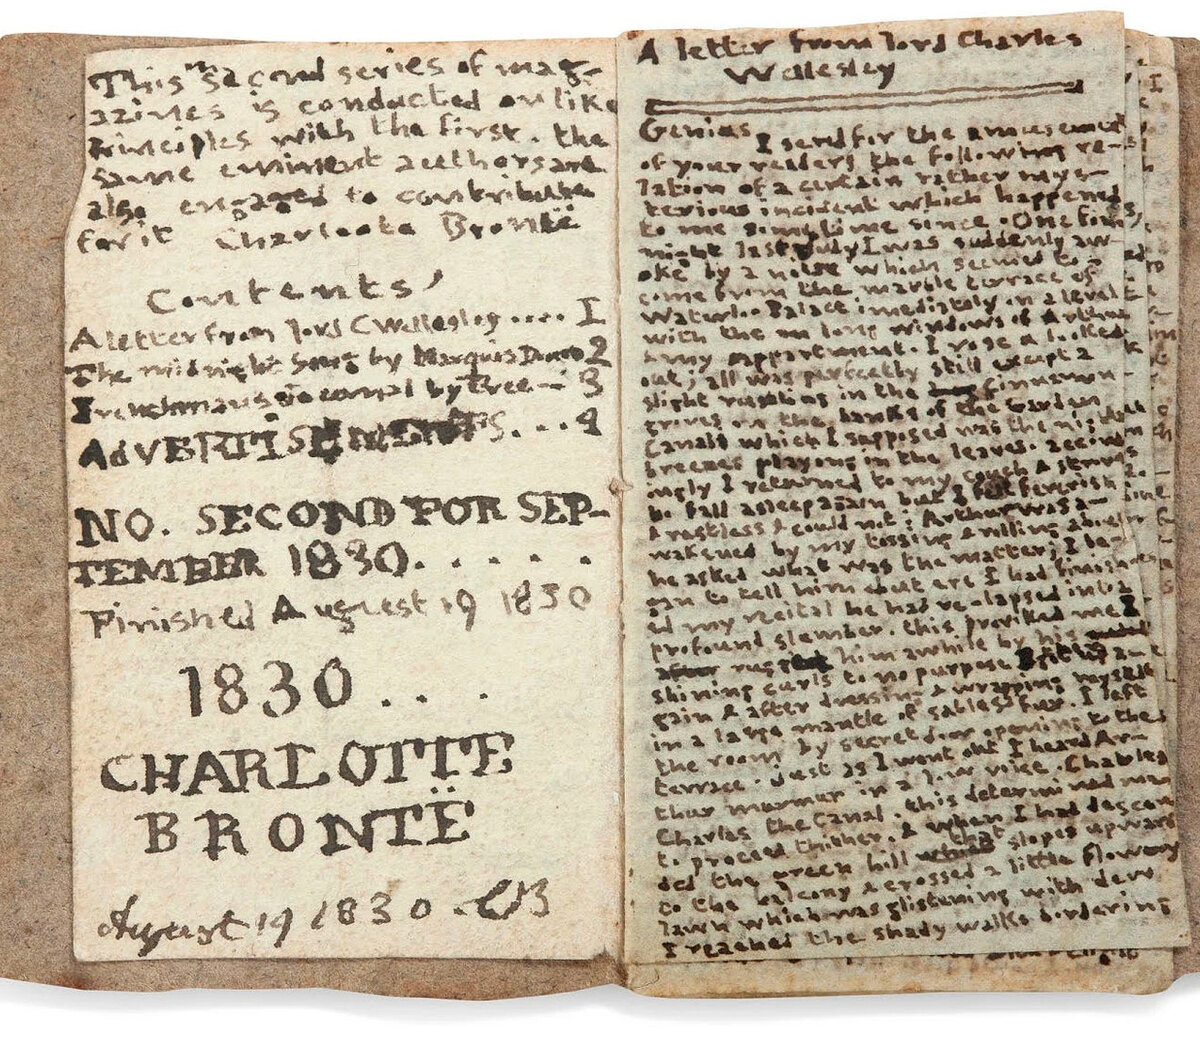 This second series of mag-
azines is conducted on like
Principles with the first. the
same eminent authors are
also engaged to contribute
for it Charlotte Brontë
Contents
A letter from lord C Wellesley .... I
The midnight Song by Marquis Douro 2
Frenchmans journal by Tree — 3
AdVERTISEMENTS ... 4
NO. SECOND FOR SEP-
TEMBER 1830. . . . .
Finished August 19 1830
1830 . . .
CHARLOTTE
BRONTË
August 19 1830. CB
A letter from lord Charles
Wellesley
Genius I send for the amusement
of your readers the following re-
lation of a certain rather mys-
terious incident which happened
to me sometime since. One fine
night last July I was suddenly aw-
oke by a noise which seemed to
come from the marble terrace of
Waterloo Palace imediately on a level
with the long windows of Arthur
& my appartment. I rose & looked
out, all was perfectly still except a
slight rustling in the cinnamon-
groves on the banks of the Garden
Canals which I supposed was the night
breezes playing in the leaves. accord
ingly I returned to my couch & strove
to fall asleep again but I feverish
& restless & could not; Arthur was a-
wakened by my tossing & rolling about
he asked what was the matter; I be-
gan to tell him but ere I had finish
ed my recital he had re-lapsed into a
profound slumber. this provoked me I
rugged him awhile by his
shining curls to no purpose a-
gain & after dressing & wrapping myself
in a large mantle of sables fur. I left
the room by secret door opening to the
terrace. Jest as I went out I heard Ar-
thur murmur in a low voice. Charles
Charles the Canal. this determined me
to proceed thither. & when I had descen
ded the green hill that slopes upward
to the balcony & crossed a little flowery
lawn which was glistening with dew
I reached the shady walks bordering